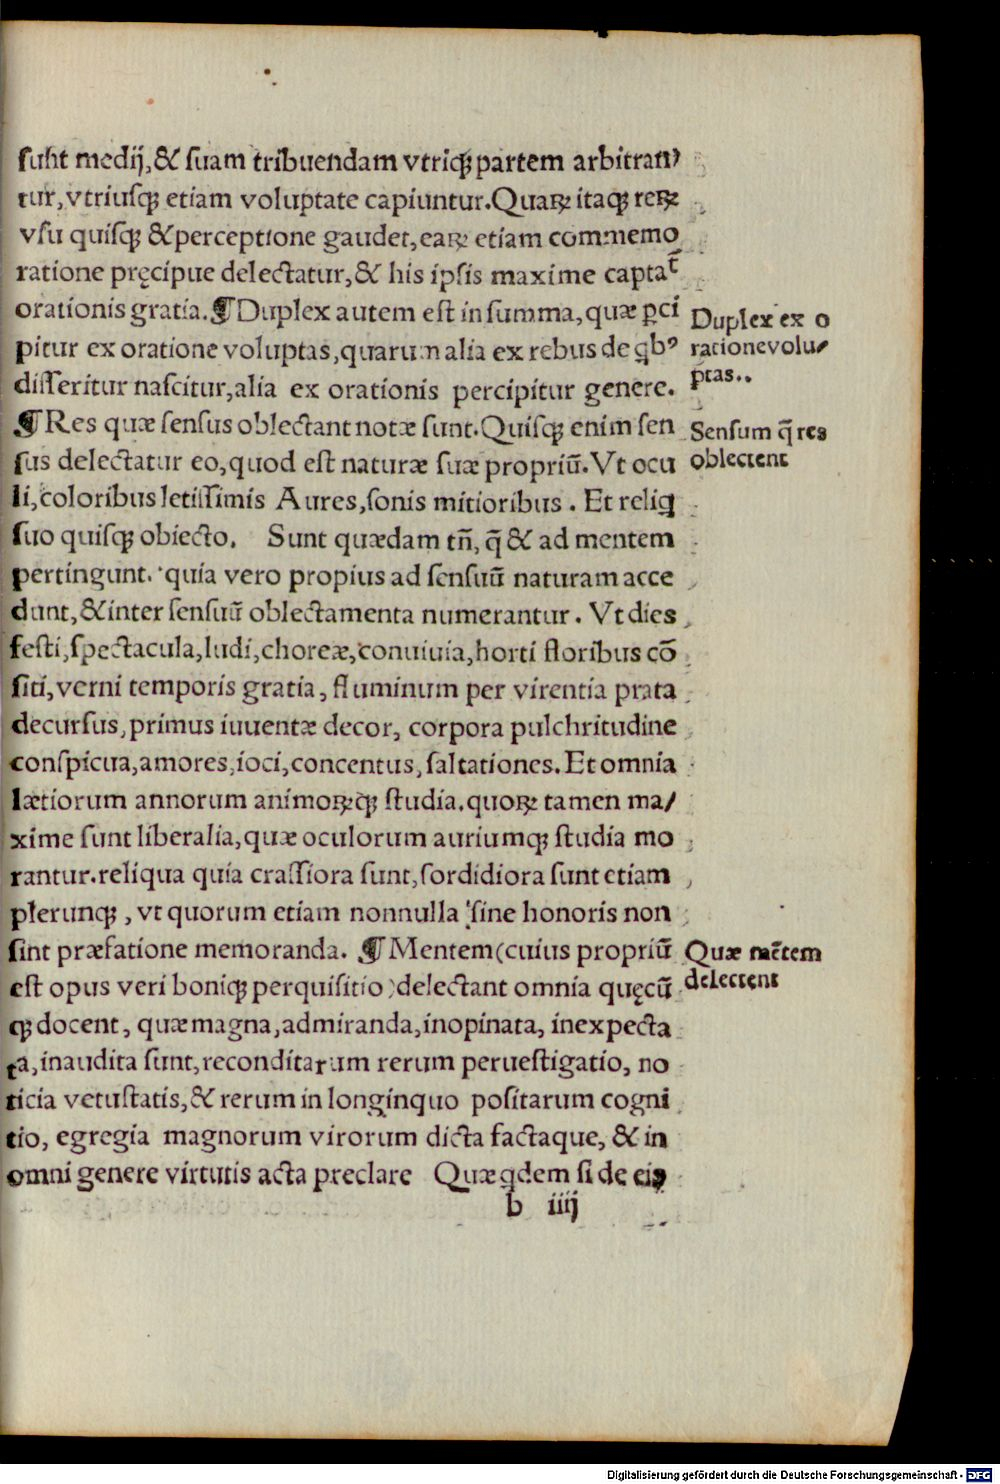 ſunt medij, & ſuam tribuendam vtriqꝫ partem arbitran⸗
tur, vtriuſqꝫ etiam voluptate capiuntur. Quaꝝ itaqꝫ reꝝ
vſu quiſqꝫ & perceptione gaudet, eaꝝ etiam commemo
ratione pręcipue delectatur, & his ipſis maxime captat̄
orationis gratia. ¶ Duplex autem eſt in ſumma, quæ ꝑci
pitur ex oratione voluptas, quarum alia ex rebus de qͥbꝰ
diſſeritur naſcitur, alia ex orationis percipitur genere.
¶ Res quæ ſenſus oblectant notæ ſunt. Quiſqꝫ enim ſen
ſus delectatur eo, quod eſt naturæ ſuæ propriū. Vt ocu
li, coloribus letiſſimis Aures, ſonis mitioribus. Et reliqͥ
ſuo quiſqꝫ obiecto. Sunt quædam tñ, q̄ & ad mentem
pertingunt. quia vero propius ad ſenſuū naturam acce
dunt, & inter ſenſuū oblectamenta numerantur. Vt dies
feſti, ſpectacula, ludi, choreæ, conuiuia, horti floribus cō
ſiti, verni temporis gratia, fluminum per virentia prata
decurſus, primus iuuentæ decor, corpora pulchritudine
conſpicua, amores, ioci, concentus, ſaltationes. Et omnia
lætiorum annorum animoꝝqꝫ ſtudia. quoꝝ tamen ma/
xime ſunt liberalia, quæ oculorum auriumqꝫ ſtudia mo
rantur. reliqua quia craſſiora ſunt, ſordidiora ſunt etiam
plerunqꝫ, vt quorum etiam nonnulla ſine honoris non
ſint præfatione memoranda. ¶ Mentem (cuius propriū
eſt opus veri boniqꝫ perquiſitio) delectant omnia quęcū
qꝫ docent, quæ magna, admiranda, inopinata, inexpecta
ta, inaudita ſunt, reconditarum rerum perueſtigatio, no
ticia vetuſtatis, & rerum in longinquo poſitarum cogni
tio, egregia magnorum virorum dicta factaque, & in
omni genere virtutis acta preclare Quæ qͥdem ſi de eis
b iiij
Duplex ex o
ratione volu⸗
ptas..
Senſum q̄ res
oblectent
Quæ mētem
delectent
Digitalisierung gefördert durch die Deutsche Forschungsgemeinschaft - DFG